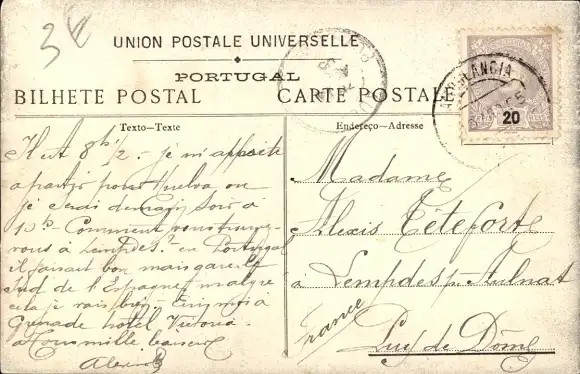 3
UNION POSTALE UNIVERSELLE
PORTUGAL
BILHETE POSTAL CARTE POSTALE
AMBULANCIA
20
Texto—Texte
Endereço—Adresse
Il est 8h 1/2 - je m'apprête
à partir pour Huelva où
je serai demain soir à
10h - Comment vous trouvez-
vous à Lempdes? en Portugal
il faisait bon mais gare le
sud de l'Espagne malgré
cela je vais bien -
à
Grenade hôtel Victoria
mille baisers
Alexis
Madame
Alexis Têteforte
à Lempdes p. Aulnat
Puy de Dôme
France